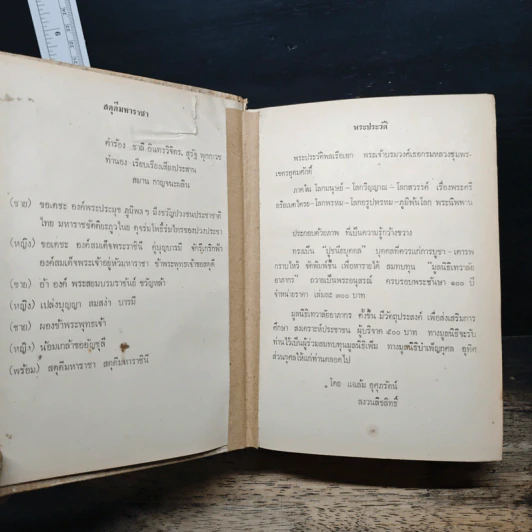 สดุดีมหาราชา
คำร้อง ชาลี อินทรวิจิตร, สุรัฐ พุกกะเวส
ทำนอง เรียบเรียงเสียงประสาน
สมาน กาญจนะผลิน
(ชาย) ขอเดชะ องค์พระประมุข ภูมิพล ฯ มิ่งขวัญปวงชนประชาชาติ
ไทย มหาราชขัตติยะภูวไนย ดุจร่มโพธิ์ร่มไทรของปวงประชา
(หญิง) ขอเดชะ องค์สมเด็จพระราชินี คู่บุญบารมี จักรีเกริกฟ้า
องค์สมเด็จพระเจ้าอยู่หัวมหาราชา ข้าพระพุทธเจ้าขอสดุดี
(ชาย) อ้า องค์ พระสยามบรมราชันย์ ขวัญหล้า
(หญิง) เปล่งบุญญา สมสง่า บารมี
(ชาย) ผองข้าพระพุทธเจ้า
(หญิง) น้อมเกล้าขออัญชุลี
(พร้อม) สดุดีมหาราชา สดุดีมหาราชินี
พระประวัติ
พระประวัติพลเรือเอก พระเจ้าบรมวงศ์เธอกรมหลวงชุมพร-
เขตรอุดมศักดิ์
ภาคใน โลกมนุษย์ - โลกวิญญาณ - โลกสวรรค์ เรื่องพระศรี
อริยเมตไตรย - โลกพรหม - โลกอรูปพรหม - ภูมิพ้นโลก พระนิพพาน
ประกอบด้วยภาพ ที่เป็นความรู้กว้างขวาง
ทรงเป็น "ปูชนียบุคคล" บุคคลที่ควรแก่การบูชา - เคารพ
กราบไหว้ จัดพิมพ์ขึ้น เพื่อหารายได้ สมทบทุน "มูลนิธิเทวาลัย
อาภากร" ถวายเป็นพระอนุสรณ์ ครบรอบพระชันษา ๑๐๐ ปี
จำหน่ายราคา เล่มละ ๓๐๐ บาท
มูลนิธิเทวาลัยอาภากร ตั้งขึ้น มีวัตถุประสงค์ เพื่อส่งเสริมการ
ศึกษา สงเคราะห์ประชาชน ผู้บริจาค ๕๐๐ บาท ทางมูลนิธิจะรับ
ท่านไว้เป็นผู้ร่วมสมทบทุนมูลนิธิเพิ่ม ทางมูลนิธิบำเพ็ญกุศล อุทิศ
ส่วนกุศลให้แก่ท่านตลอดไป
โดย แฉล้ม อุศุภรัตน์
สงวนลิขสิทธิ์